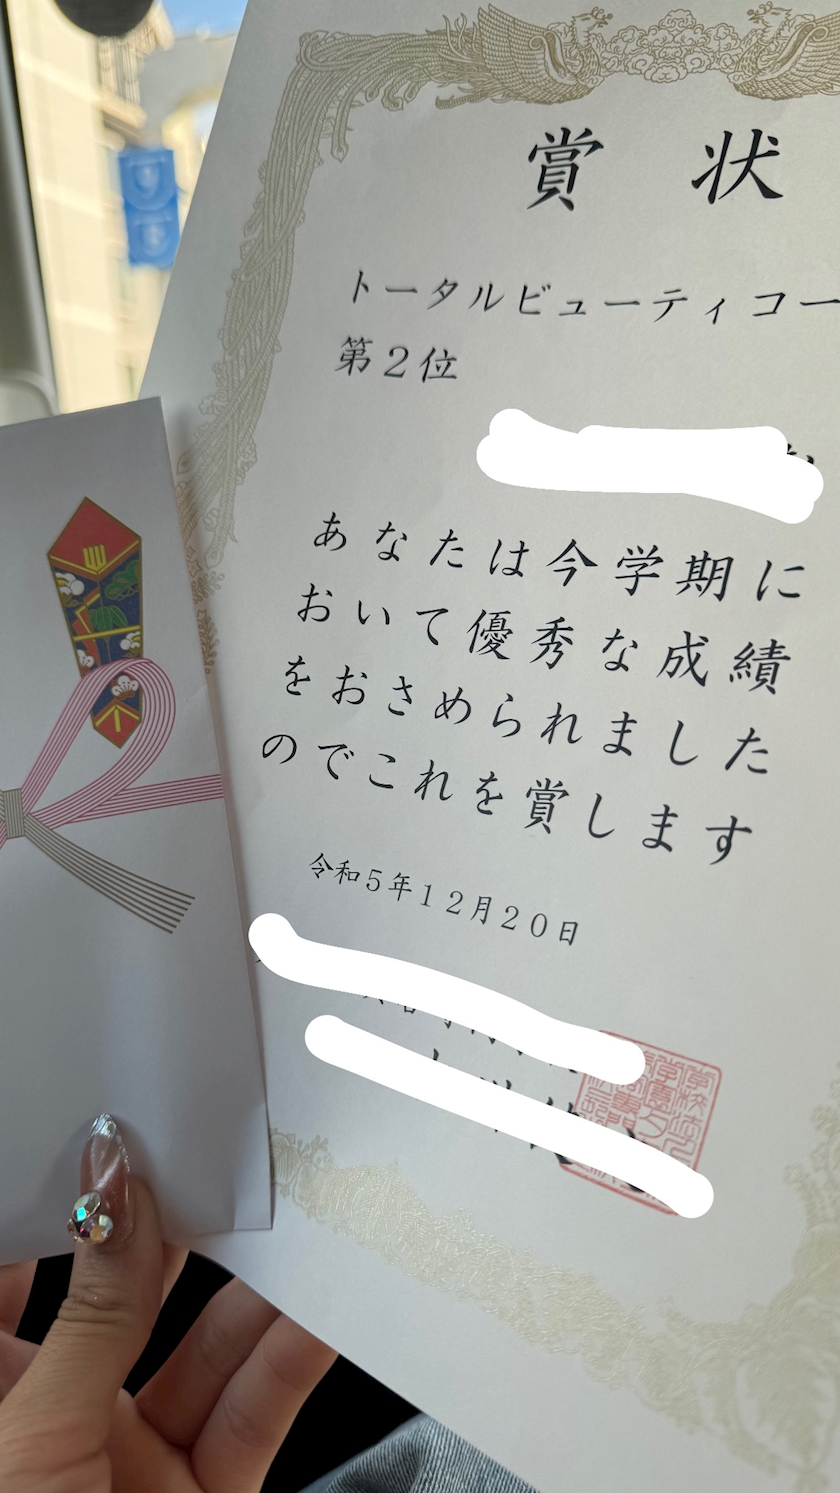 賞状
トータルビューティコー
第2位
あなたは今学期に
おいて優秀な成績
をおさめられました
のでこれを賞します
令和5年12月20日